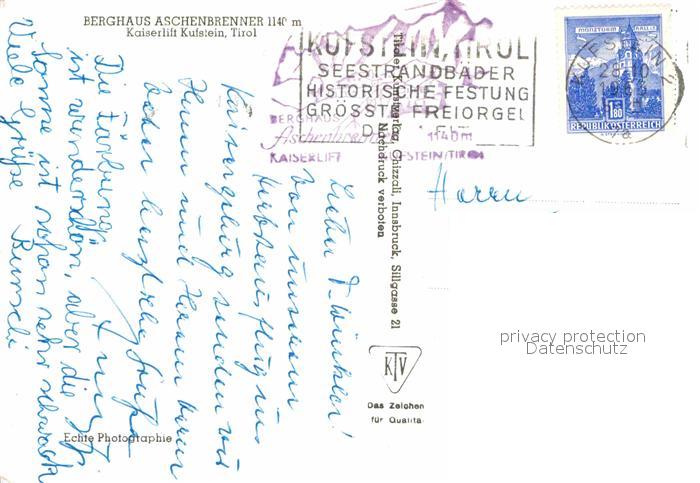 BERGHAUS ASCHENBRENNER 1140 m
Kaiserlift Kufstein, Tirol
KUFSTEIN, TIROL
SEESTRANDBÄDER
HISTORISCHE FESTUNG
GRÖSSTE FREIORGEL
BERGHAUS
Aschenbrenner 1140m
KAISERLIFT KUFSTEIN/TIROL
MÜNZTURM HALL
1.80
REPUBLIK ÖSTERREICH
KUFSTEIN 2
Tiroler Kunstverlag Chizzali, Innsbruck, Sillgasse 21
Nachdruck verboten
Herrn
Lieber
von unserem
Herbstausflug ins
Kaisergebirg senden wir
Ihnen und Ihrer
Die Färbung
ist wundervoll, aber die
Sonne ist schon sehr schwach
Viele Grüße
KTV
Das Zeichen
für Qualität
Echte Photographie
privacy protection
Datenschutz